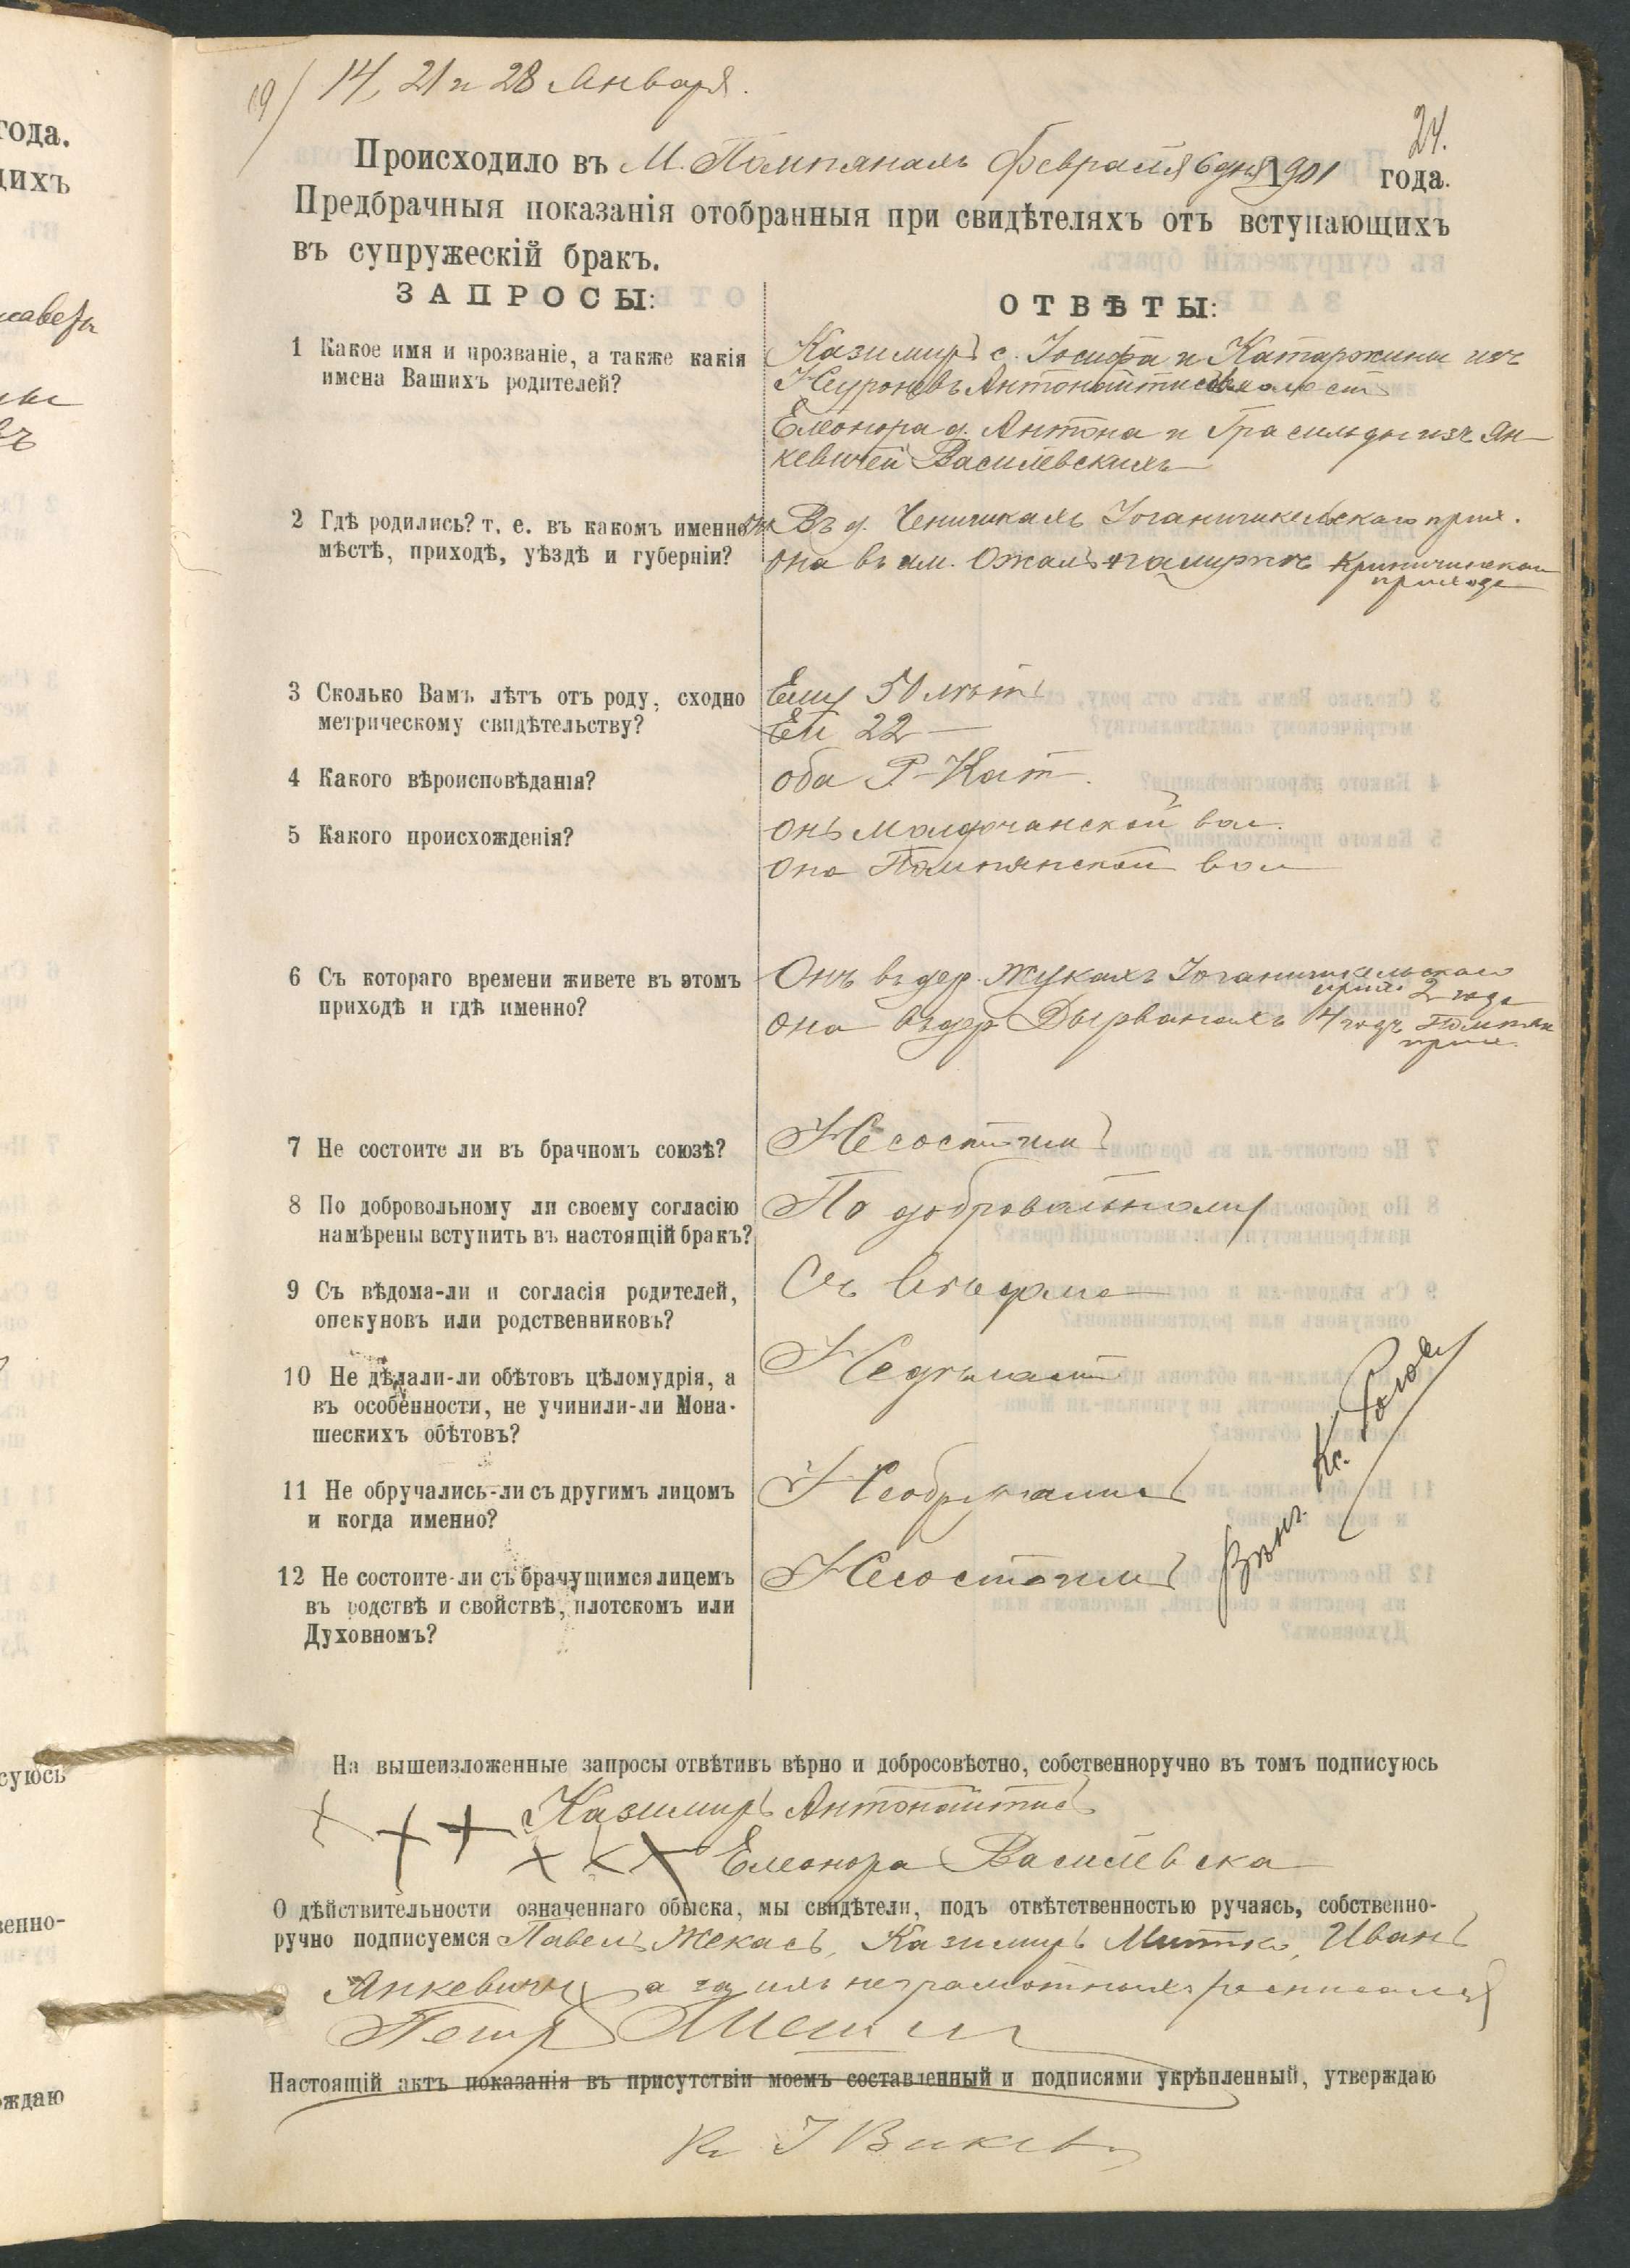 19/ 14, 21 и 28 Января.
24.
Происходило въ М. Помпянахъ Февраля 6 дня 1901 года.
Предбрачныя показанія отобранныя при свидѣтеляхъ отъ вступающихъ
въ супружескій бракъ.
ЗАПРОСЫ:
ОТВѢТЫ:
1 Какое имя и прозваніе, а также какія
имена Вашихъ родителей?
Казимиръ с. Іосифа и Катаржины изъ
Антонайтисъ
Елеонора д. Антона и Грасильды изъ Ян-
кевичей Василевскихъ
2 Гдѣ родились? т. е. въ какомъ именно
мѣстѣ, приходѣ, уѣздѣ и губерніи?
Въ д. Ченишкахъ Іоганишкельскаго прих.
она въ им. Криничинскаго
прихода
3 Сколько Вамъ лѣтъ отъ роду, сходно
метрическому свидѣтельству?
Ему 50 лѣтъ
Ей 22 —
4 Какого вѣроисповѣданія?
оба Р-Кат.
5 Какого происхожденія?
онъ вол.
она Помпянской вол
6 Съ котораго времени живете въ этомъ
приходѣ и гдѣ именно?
Онъ въ дер. Жукахъ Іоганишкельскаго
прих. 2 года
она въ дер Дырванахъ 4 годъ Помпян
прих.
7 Не состоите ли въ брачномъ союзѣ?
Несостоимъ
8 По добровольному ли своему согласію
намѣрены вступить въ настоящій бракъ?
По добровольному
9 Съ вѣдома-ли и согласія родителей,
опекуновъ или родственниковъ?
Съ вѣдома
10 Не дѣлали-ли обѣтовъ цѣломудрія, а
въ особенности, не учинили-ли Мона-
шескихъ обѣтовъ?
11 Не обручались-ли съ другимъ лицомъ
и когда именно?
Необручались
12 Не состоите-ли съ брачущимся лицемъ
въ родствѣ и свойствѣ, плотскомъ или
Духовномъ?
Несостоимъ
Вѣнч. Кс.
На вышеизложенные запросы отвѣтивъ вѣрно и добросовѣстно, собственноручно въ томъ подписуюсь
+++ Казимиръ Антонайтисъ
+++ Елеонора Василевска
О дѣйствительности означеннаго обыска, мы свидѣтели, подъ отвѣтственностью ручаясь, собственно-
ручно подписуемся Павелъ Жекасъ, Казимиръ Митко, Иванъ
Янкевичъ а за ихъ неграмотныхъ росписался
Петръ
Настоящій актъ показанія въ присутствіи моемъ составленный и подписями укрѣпленный, утверждаю